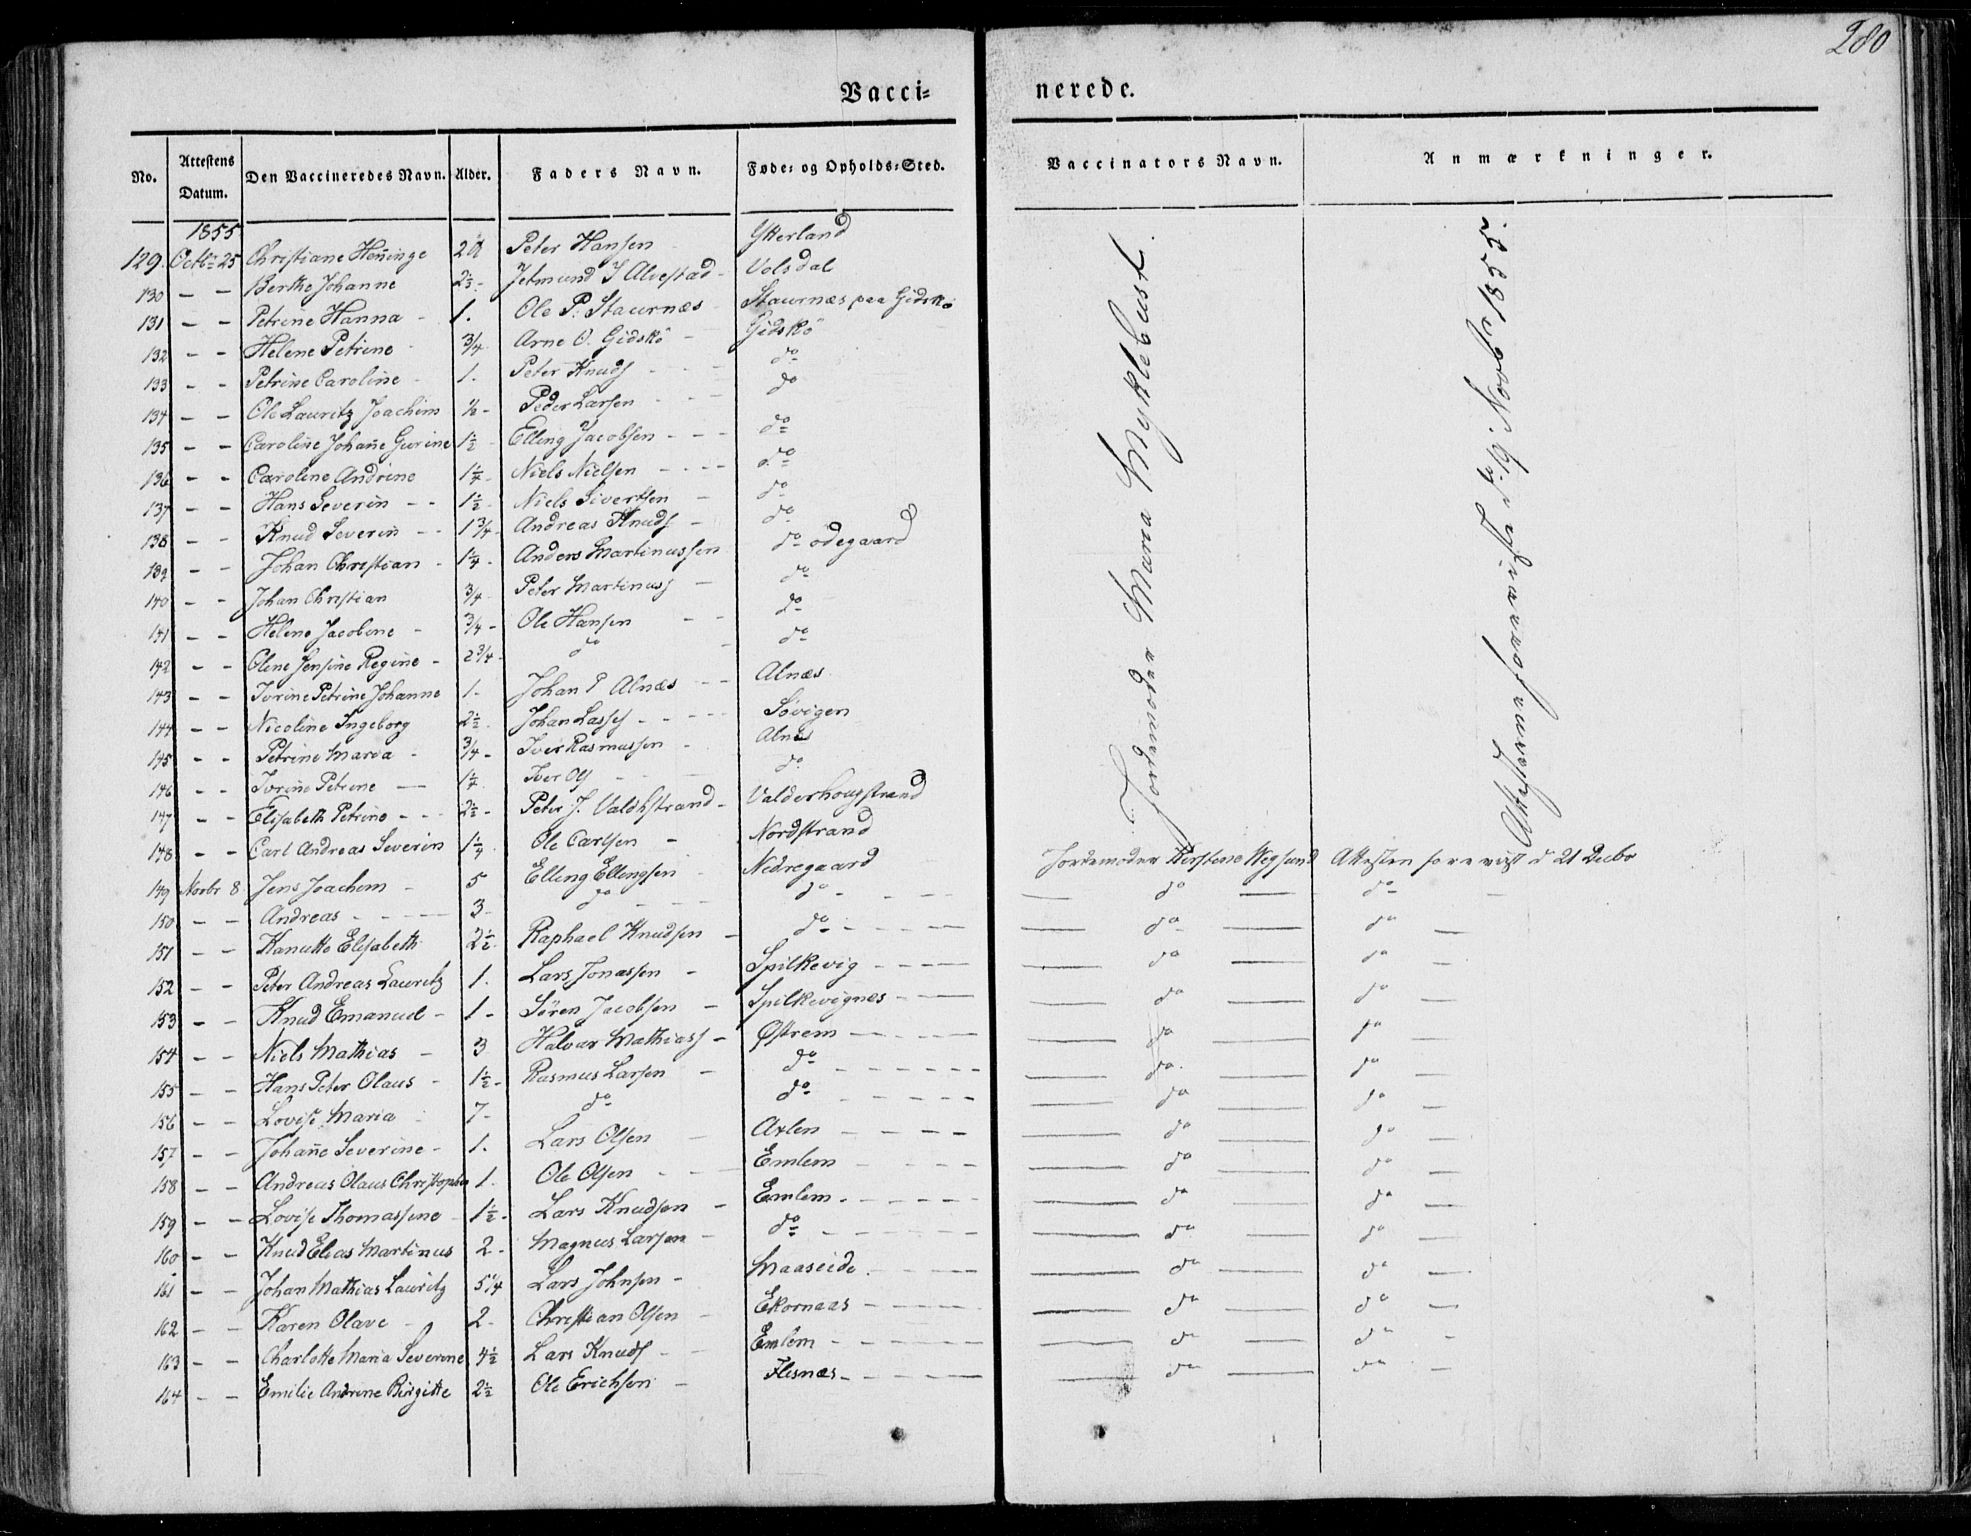 280
Vacci= nerede.
No. Attestens Datum. Den Vaccineredes Navn. Alder. Faders Navn. Føde= og Opholds=Sted. Vaccinators Navn. Anmærkninger.
1855
129. Octbr 25 Christiane Heninge 2 Peter Hansen Ytterland
130 - - Berthe Johanne 2½ - Jetmund J Alvestad - Volsdal
131 - - Petrine Hanna - 1. Ole P. Staurnæs Staurnæs paa Gidskö
132 - - Helene Petrine - ¾ Arne O. Gidskö - Gidskö
133 - - Petrine Caroline - 1. Peter Knuds - - - do
134 - - Ole Lauritz Joachim ½ - Peder Larsen - - - do
135 - - Caroline Johañe Gurine 1½ Elling Jacobsen - - - do
136 - - Caroline Andrine 1¼ Niels Nielsen - - - - do
137 - - Hans Severin - - 1½ Niels Sivertsen - do
138 - - Knud Severin - - 1¾ - Andreas Knuds - do
139 - - Johan Christian - 1¼ - Anders Martinussen do ödegaard
140 - - Johan Christian ¾ Peter Martinus - do
141 - - Helene Jacobine - ¾ - Ole Hansen - - do
142 - - Oline Jensine Regine - 2¾ - do - do
143 - - Ivrine Petrine Johanne 1. Johan P Alnæs - - Alnæs
144 - - Nicoline Ingeborg 2½ Johan Lasses - - - - Sövigen
145 - - Petrine Maria - ¾ - Iver Rasmussen - Alnæs
146 - - Ivrine Petrine - 1¼ Iver Ols - - do
147 - - Elisabeth Petrine - - - 2½ - Peter J. Valdhstrand - Valderhougstrand
148 - - Carl Andreas Severin 1¼ Ole Carlsen - Nordstrand
Jordemoder Maria Myklebust.
Attesterne foreviiste d. 19 Novbr 1855.
149 Novbr 8 Jens Joachim - 5 Elling Ellingsen - Nedregaard Jordemoder Kirstine Wegsund Attesten forevist d 21 Decbr
150 - - Andreas - - - - 3 - do - - - do - - - - do - do -
151 - - Kanutte Elisabeth 2½ Raphael Knudsen - do - - - - - do - do -
152 - - Peter Andreas Lauritz 1. Lars Jonassen - Spilkevig - - - - - do - do -
153 - - Knud Emanuel - 1 - Sören Jacobsen - Spilkevignes - - - do - do -
154 - - Niels Mathias - 3 Halvar Mathias - Østrem - - - - - do - do -
155 - - Hans Peter Olaus - 1½ - Rasmus Larsen - do - - - - - - do - do -
156 - - Lovise Maria 7 - do do - - - - - do - do -
157 - - Johañe Severine - 1. Lars Olsen - Axlen - - - - - do - do -
158 - - Andreas Olaus Christopher 1. Ole Olsen - - Emlem - - - - - do - do -
159 - - Lovise Thomassine 1½ - Lars Knudsen - Emlem - - - - - do - do -
160 - - Knud Elias Martinus 2 - Magnus Larsen - do - - - - - do - do -
161 - - Johan Mathias Lauritz 5¼ Lars Johnsen - Maaseide - - - - do - do -
162 - - Karen Olave - 2 - Christian Olsen - Ekornaas - - - - - do - do -
163 - - Charlotte Maria Severine 4½ Lars Knuds - Emlem - - - - - do - do -
164 - - Emilie Andrine Birgitte 2½ Ole Erichsen - Flisnæs - - - - - do - do -